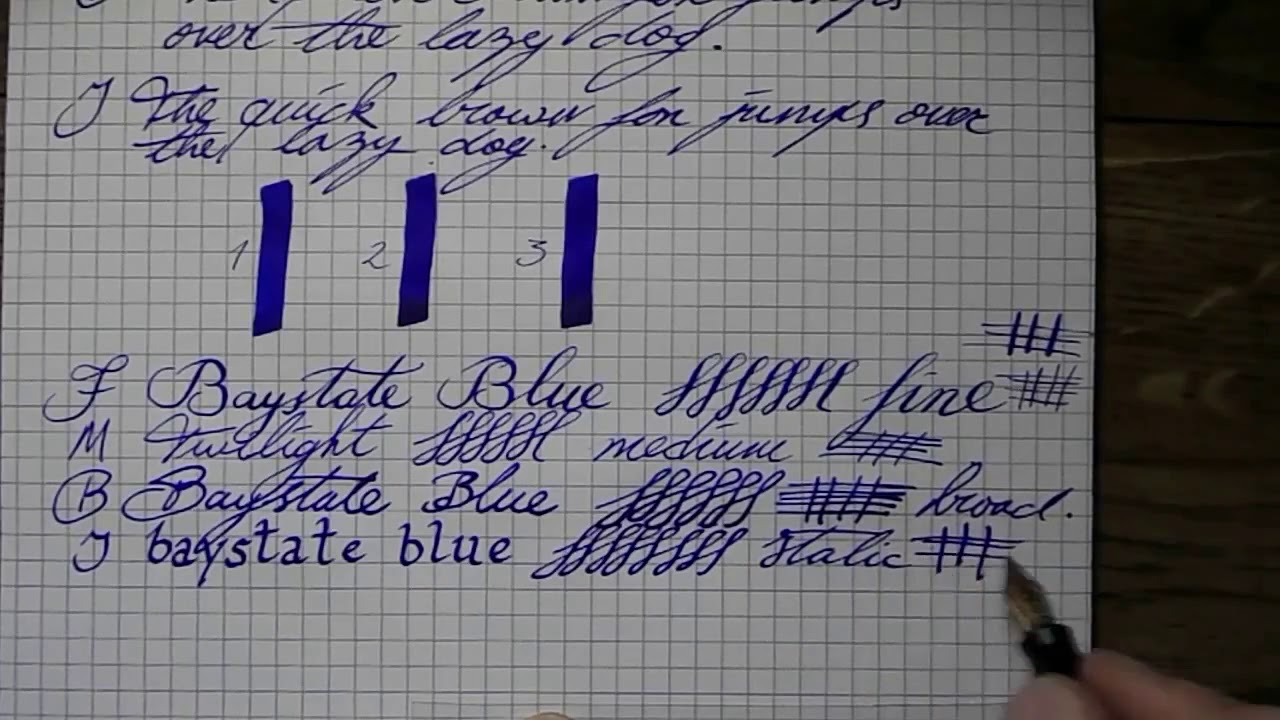 over the lazy dog.
I The quick brown fox jumps over
the lazy dog.
1 2 3
F Baystate Blue fine
M Twilight medium
B Baystate Blue broad.
I baystate blue italic